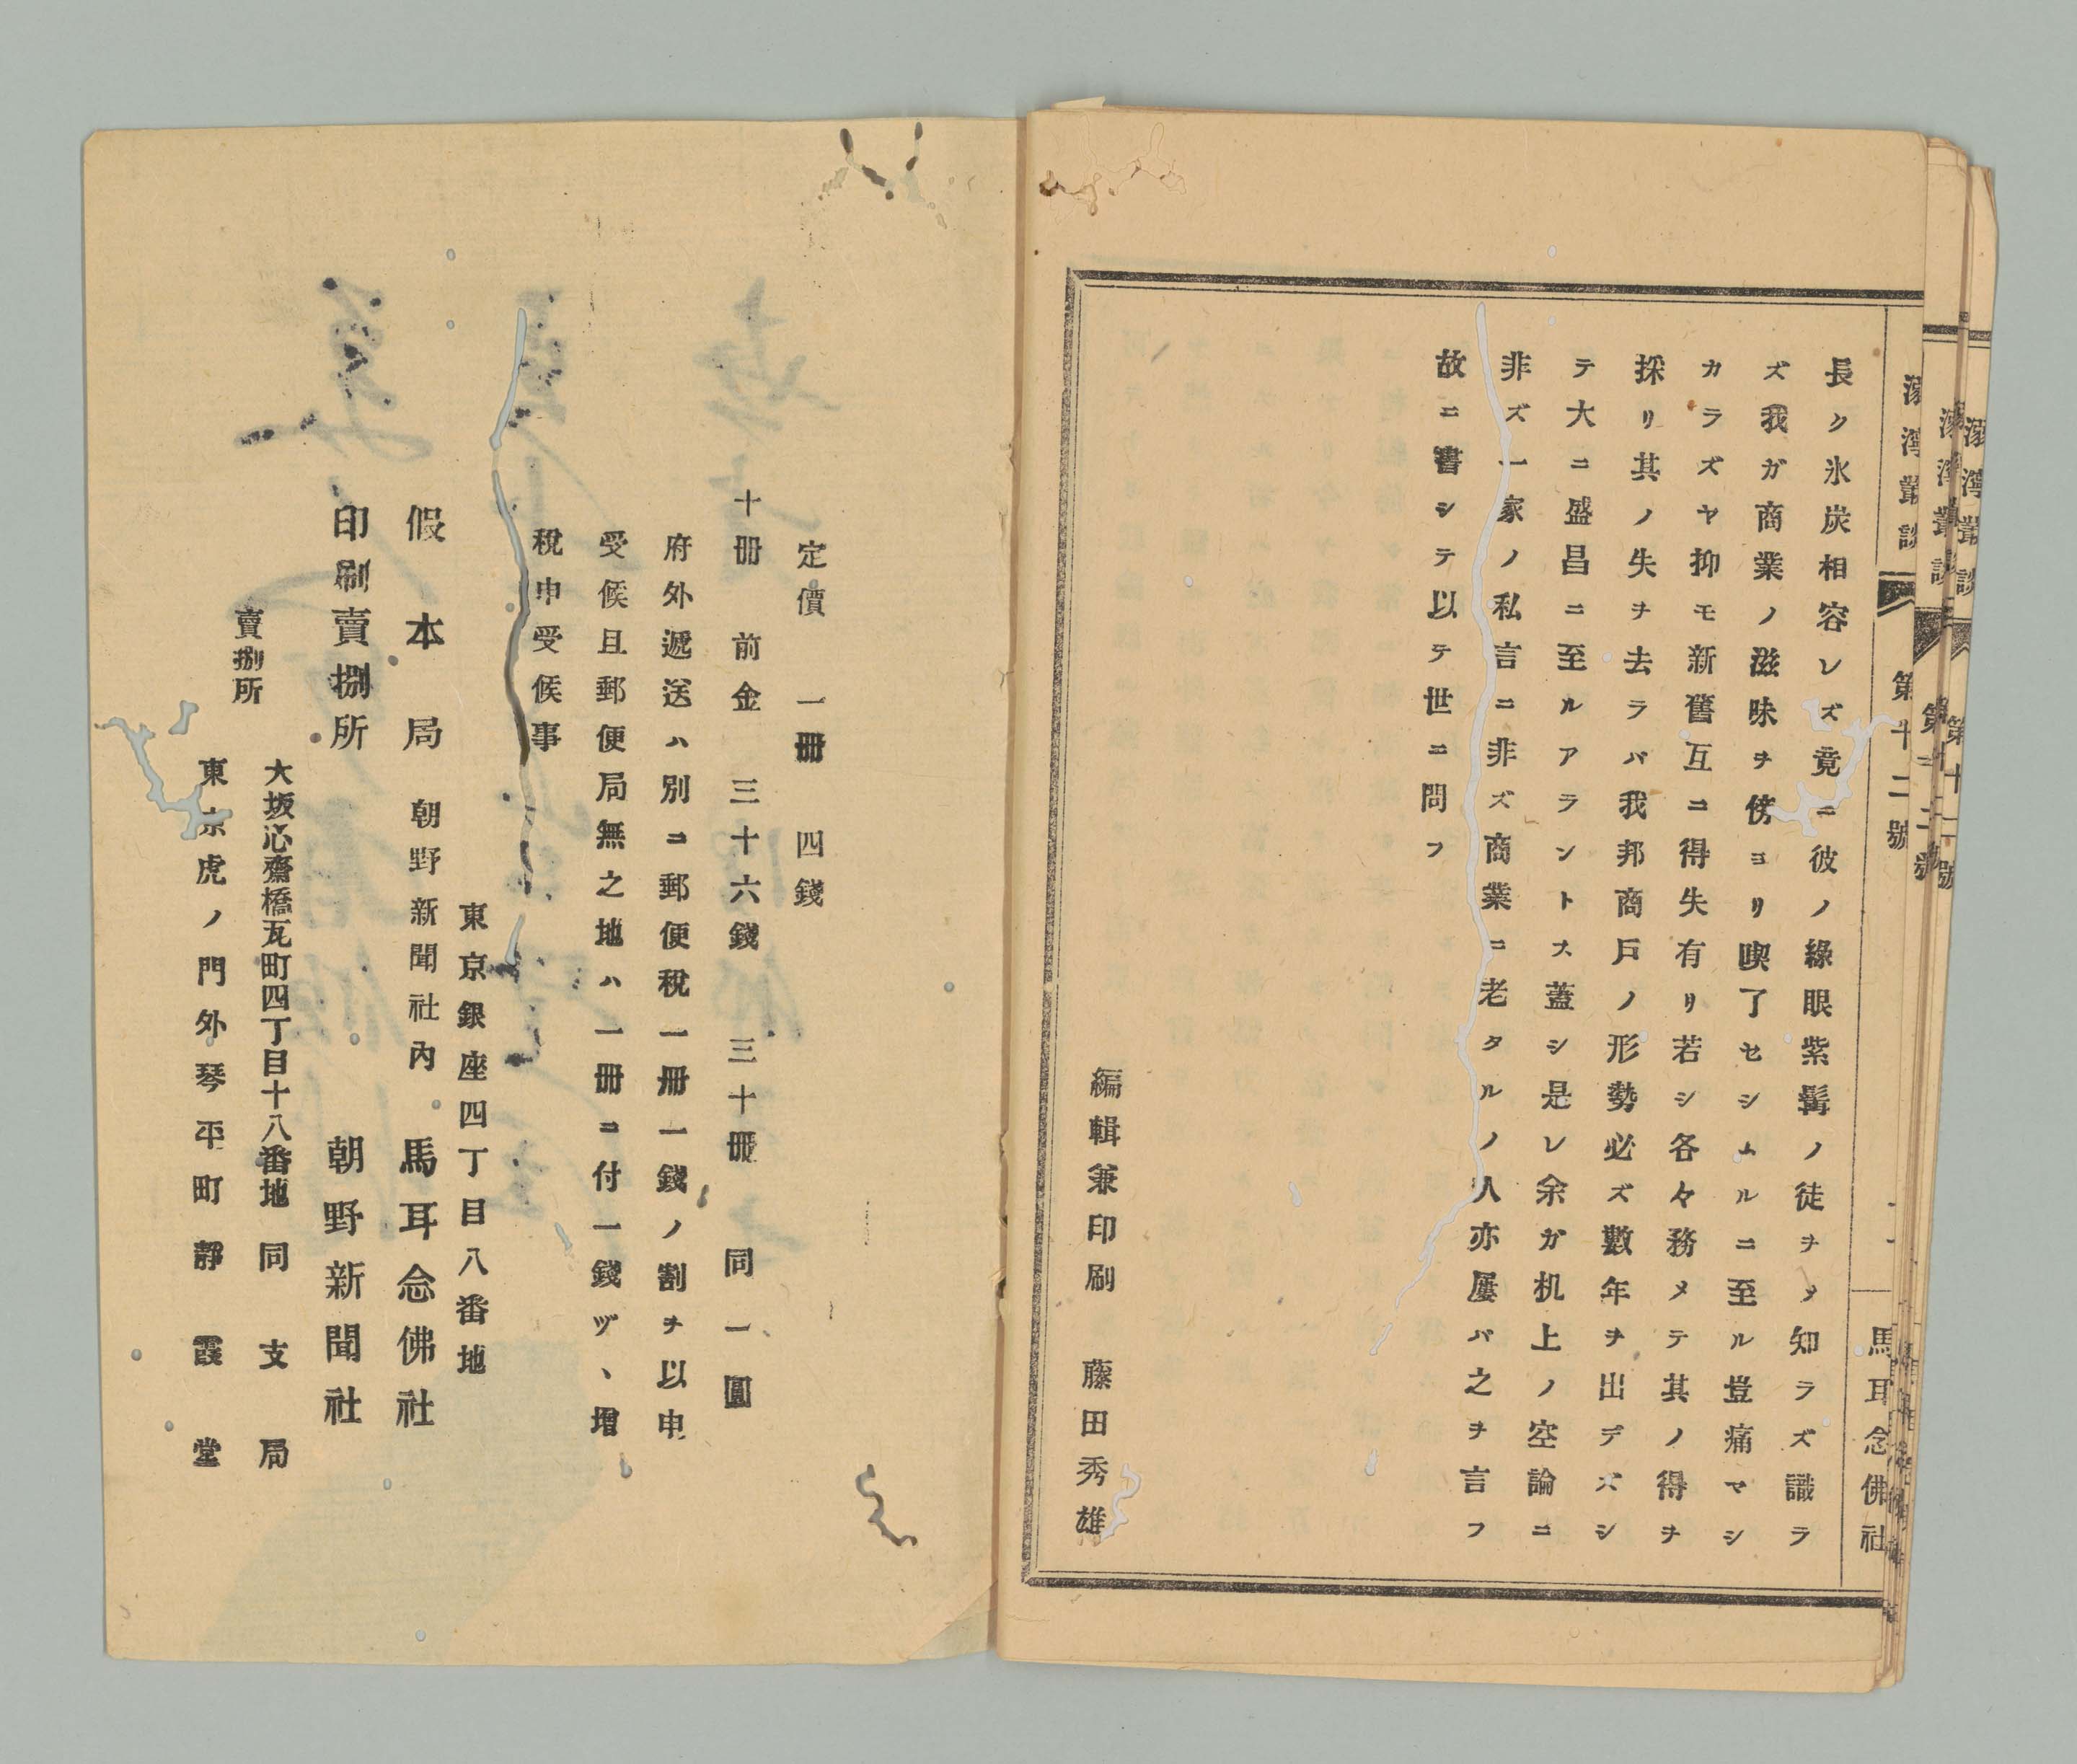 第十二號
馬耳念佛社
長ク氷炭相容レズ竟ニ彼ノ綠眼紫髯ノ徒ヲメ知ラズ識ラ
ズ我ガ商業ノ滋味ヲ傍ヨリ喫了セシムルニ至ル豈痛マシ
カラズヤ抑モ新舊互ニ得失有リ若シ各々務メテ其ノ得ヲ
採リ其ノ失ヲ去ラバ我邦商戸ノ形勢必ズ數年ヲ出デズシ
テ大ニ盛昌ニ至ルアラントス蓋シ是レ余ガ机上ノ空論ニ
非ズ一家ノ私言ニ非ズ商業ニ老タルノ人亦屢バ之ヲ言フ
故ニ書シテ以テ世ニ問フ
編輯兼印刷 藤田秀雄
定價 一冊 四錢
十冊 前金 三十六錢 三十冊 同 一圓
府外遞送ハ別ニ郵便稅一冊一錢ノ割ヲ以申
受候且郵便局無之地ハ一冊ニ付一錢ヅヽ增
稅申受候事
東京銀座四丁目八番地
假本局 朝野新聞社內 馬耳念佛社
印刷賣捌所 朝野新聞社
大坂心齋橋瓦町四丁目十八番地 同支局
賣捌所
東京虎ノ門外琴平町 靜霞堂